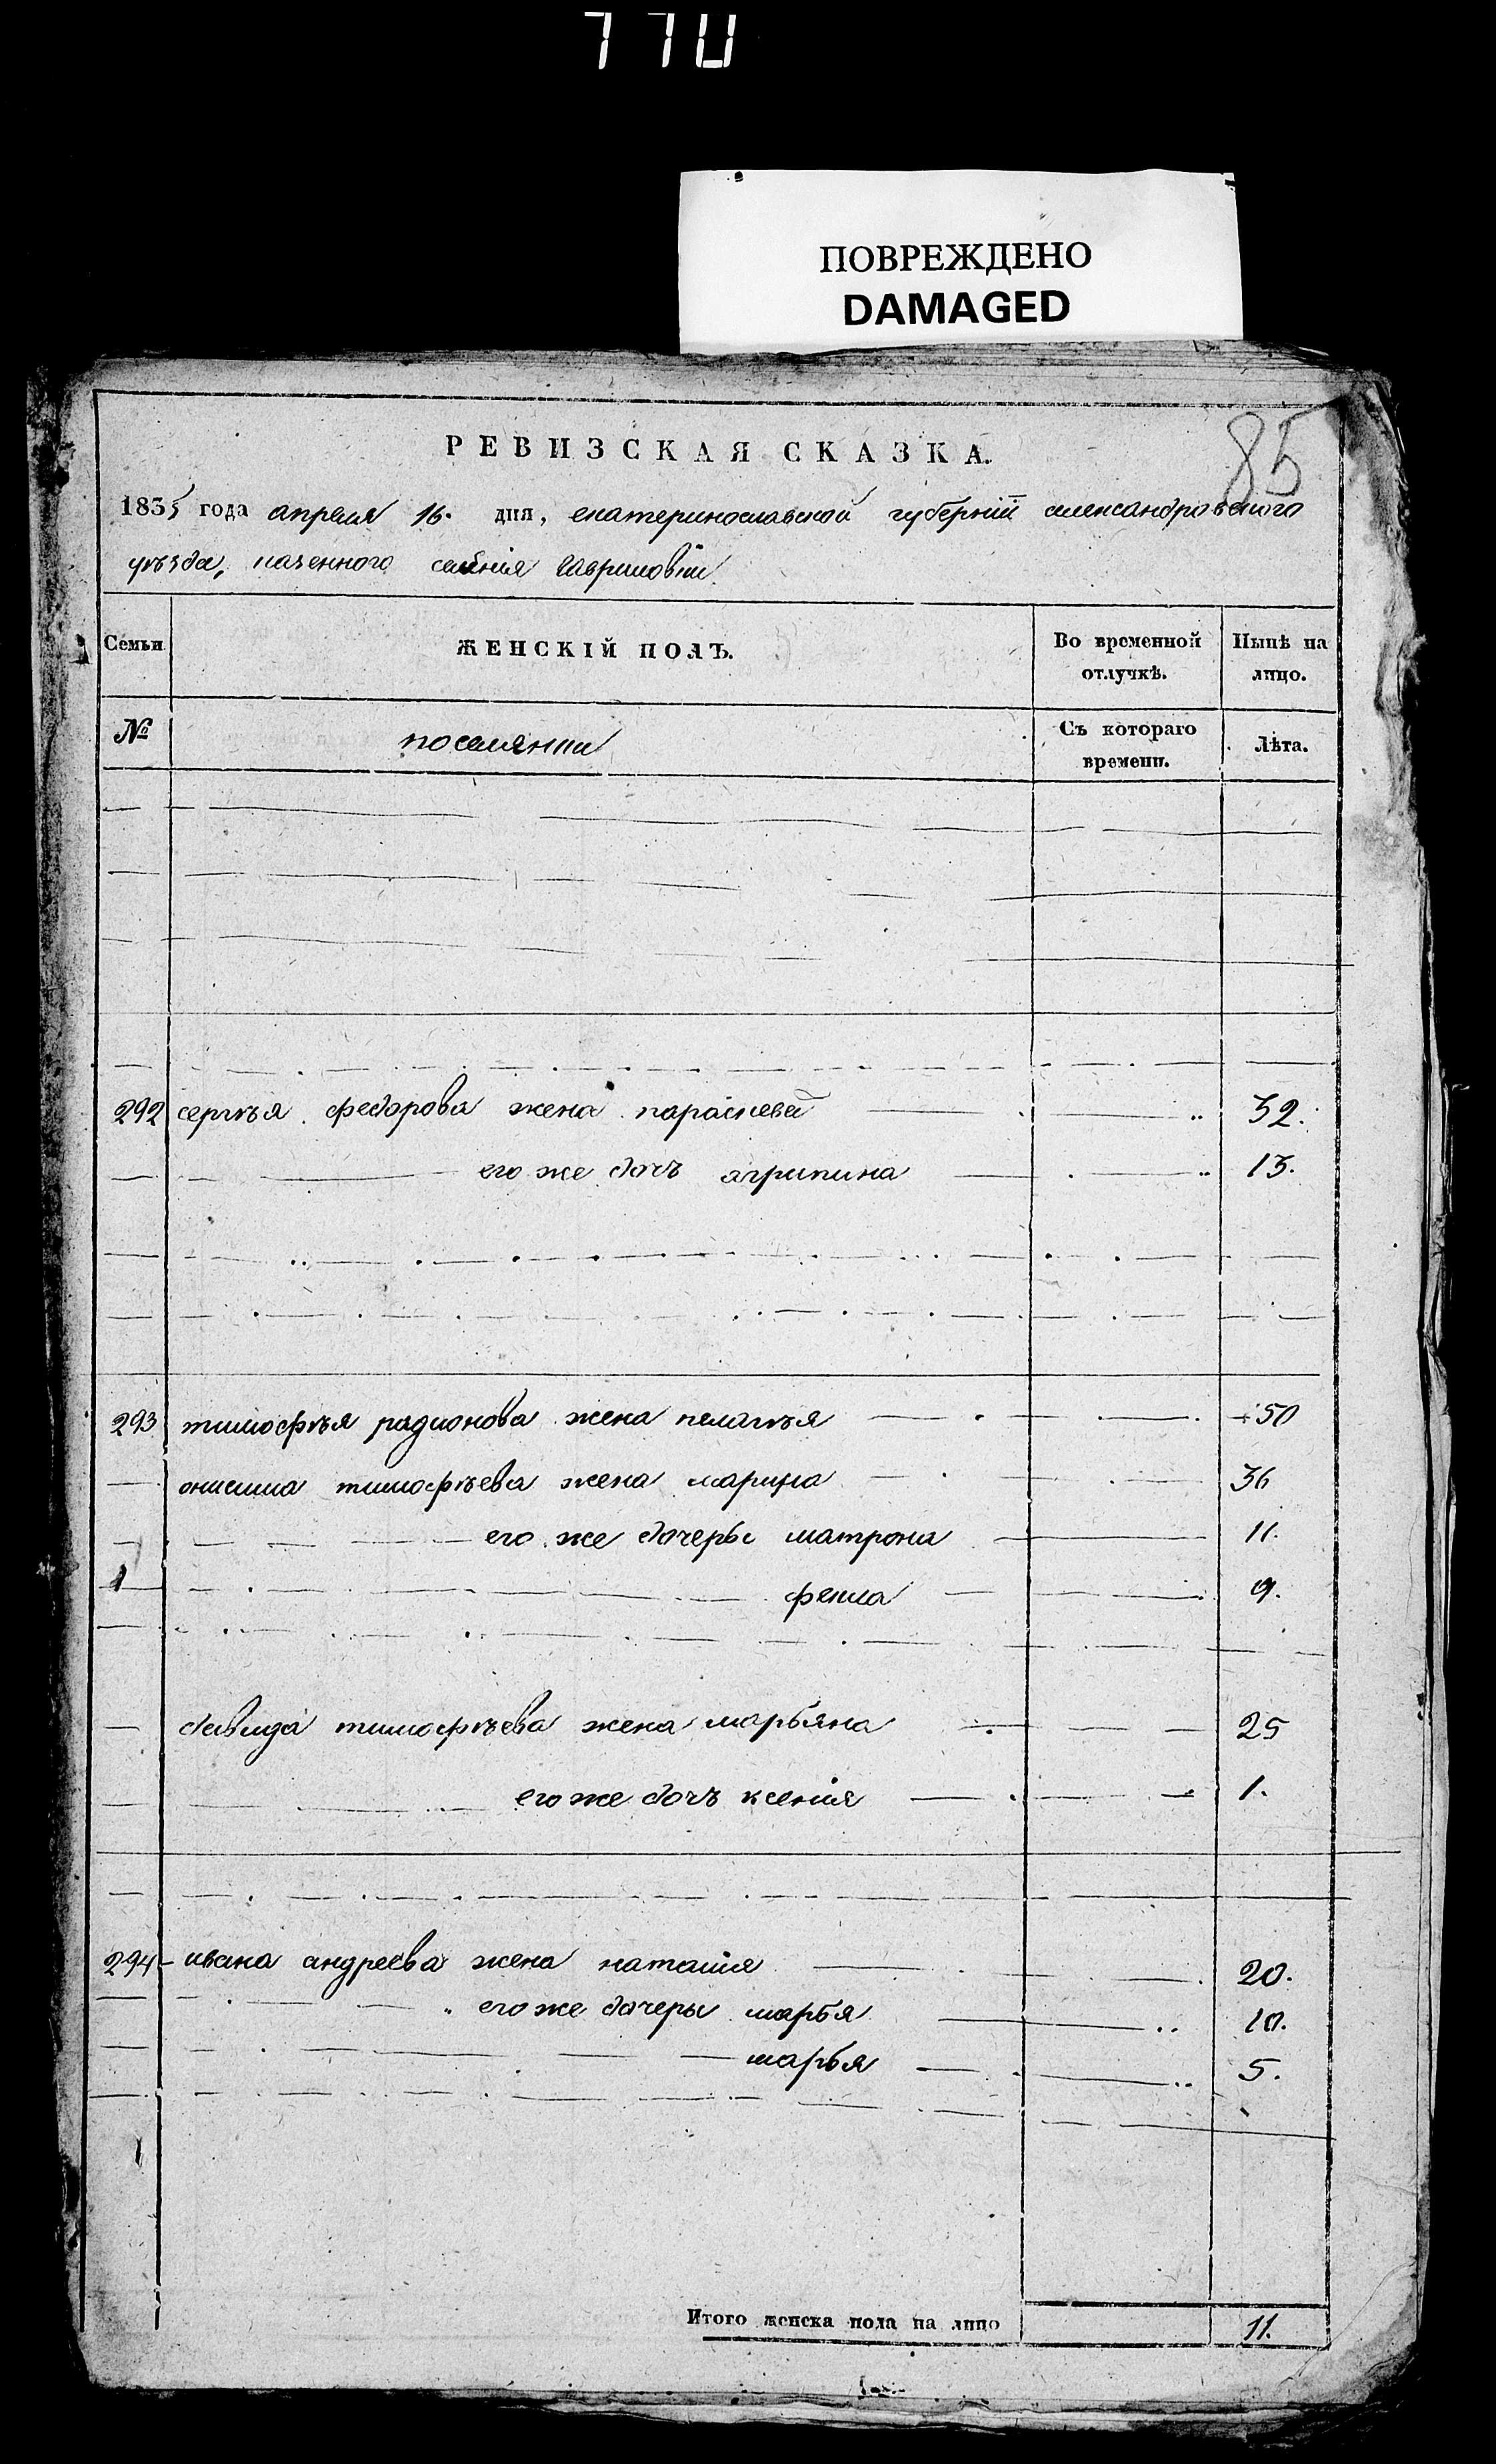 770
ПОВРЕЖДЕНО
DAMAGED
85
РЕВИЗСКАЯ СКАЗКА.
1835 года апреля 16. дня, екатеринославской губерніи александровского
уѣзда, казенного селенія Гавриловки
Семьи
ЖЕНСКІЙ ПОЛЪ.
Во временной отлучкѣ.
Нынѣ на лицо.
№
поселянки
Съ котораго времени.
Лѣта.
292 сергѣя федорова жена параскева 32.
его же дочъ агрипина 13.
293 тимофѣя радионова жена пелагѣя 50
онисима тимофѣева жена марина 36
его же дочеры матрона 11.
фекла 9.
давида тимофѣева жена марьяна 25
его же дочъ ксенія 1.
294 ивана андреева жена наталия 20.
его же дочеры марья 10.
марья 5.
Итого женска пола на лицо 11.